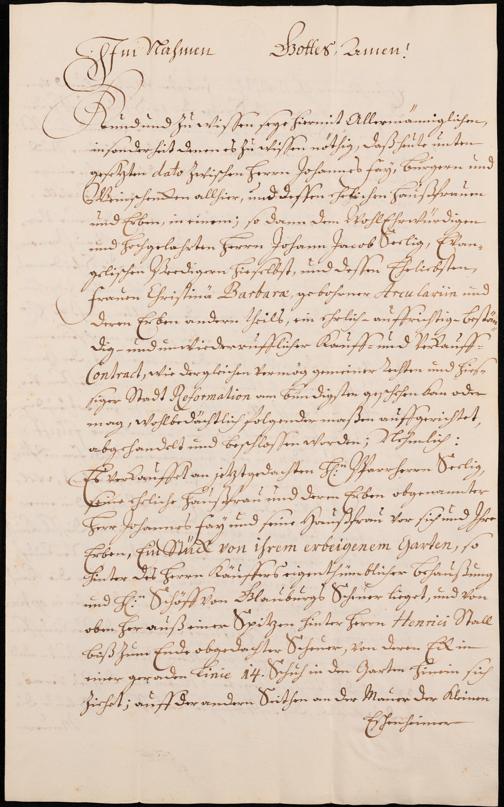 Im Nahmen Gottes, Amen!
Kund und zu wissen seye hiermit Allermänniglichen,
insonderheit denen es zu wissen nöthig, daß heute unten
gesetzten dato zwischen Herrn Johannes Fay, bürgern und
Weinschencken allhier, und dessen Ehelichen Haußfrauen
und Erben, in einem; so dann dem WohlEhrwürdigen
und Hochgelahrten Herrn Johann Jacob Seelig, Evan-
gelischen Predigern hieselbst, und dessen Eheliebsten,
Frauen Christina Barbara, gebohrner Arculariin und
deren Erben andern theils, ein ehrlich-auffrichtig-bestän-
dig- und unwiederrufflicher Kauff- und Verkauff-
Contract, wie dergleichen vermög gemeiner Rechten und hie-
siger Stadt Reformation am bündigsten geschehen kan oder
mag, wohlbedächtlich folgender maßen auffgerichtet,
abgehandelt und beschlossen worden; Nehmlich:
Es verkauffet an jetztgedachten Hn Pfarrherrn Seelig,
seine eheliche Haußfrau und deren Erben obgenannter
Herr Johannes Fay und seine Haußfrau vor sich und Ihre
Erben, Ein Stück von ihrem erbeigenem Garten, so
hinter des Herrn Käuffers eigenthümblicher behaußung
und Hn Schöff von Glauburgs Scheuer lieget, und von
oben her auß einer Spitzen hinter Herrn Henrici Stall
biß zum Ende obgedachter Scheuer, von deren Eck in
einer geraden Linie 14. Schuh in den Garten hinein sich
ziehet; auff der andern Seithen an der Mauer der Kleinen
Eschenheimer